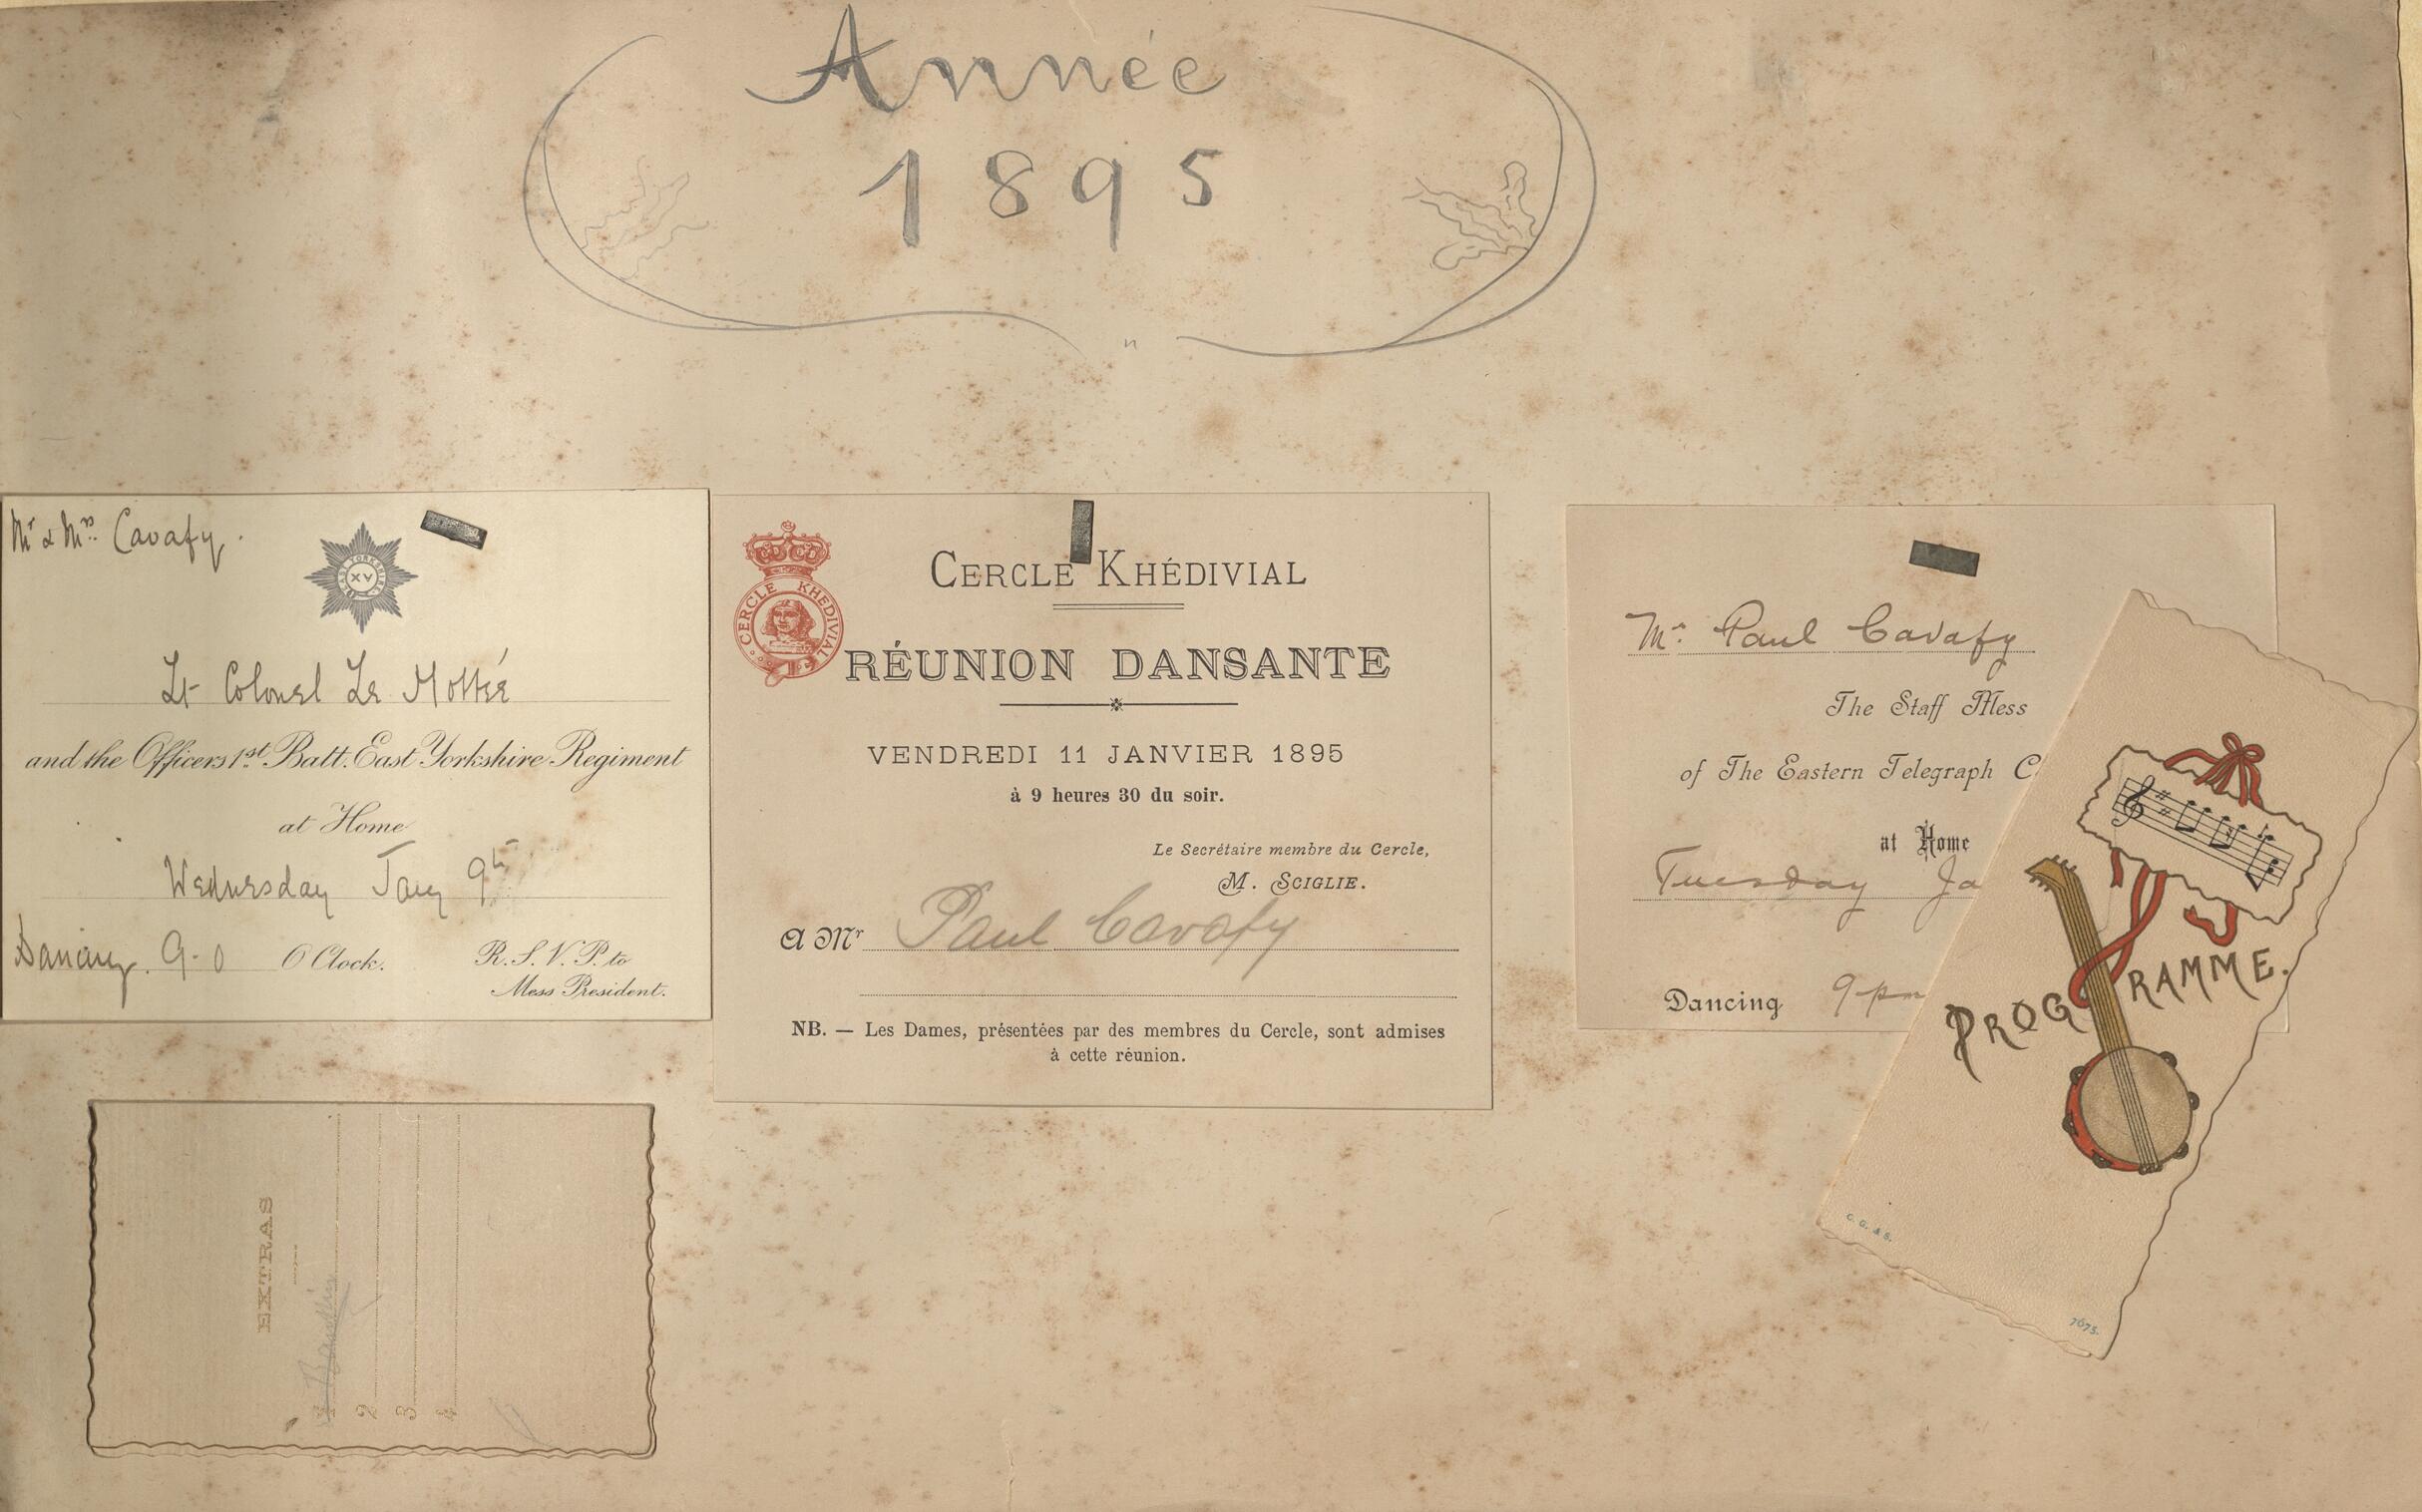 Année
1895
Mr & Mrs. Cavafy.
EAST YORKSHIRE
XV
Lt Colonel Le Mottée
and the Officers 1st. Batt. East Yorkshire Regiment
at Home
Wednesday Jany 9th
Dancing. 9-0 O'Clock. R.S.V.P. to
Mess President.
CERCLE KHÉDIVIAL
CERCLE KHÉDIVIAL
RÉUNION DANSANTE
VENDREDI 11 JANVIER 1895
à 9 heures 30 du soir.
Le Secrétaire membre du Cercle,
M. SCIGLIE.
A Mr Paul Cavafy
NB. — Les Dames, présentées par des membres du Cercle, sont admises
à cette réunion.
Mr. Paul Cavafy
The Staff Mess
of The Eastern Telegraph C
at Home
Tuesday Ja
Dancing 9 pm
PROGRAMME.
C. G. & S.
7675.
EXTRAS
1
2
3
4